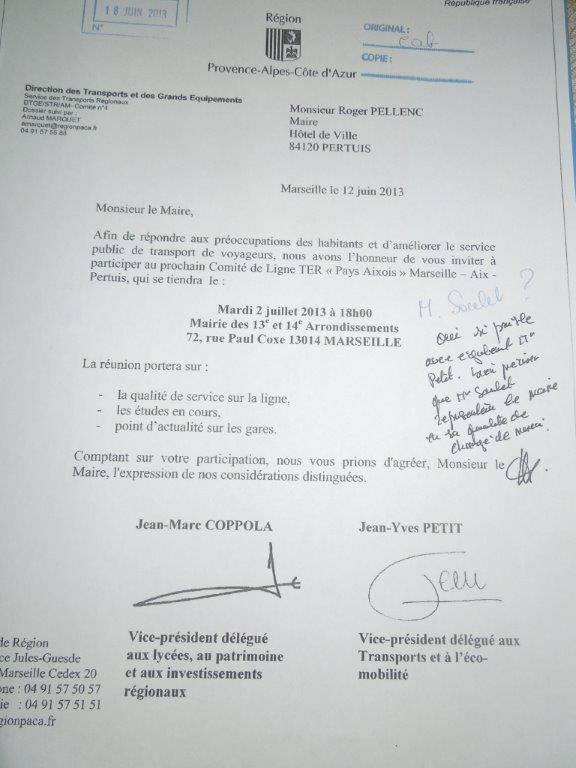 République française
18 JUIN 2013
N°
Région
Provence-Alpes-Côte d'Azur
ORIGINAL : cab
COPIE :
Direction des Transports et des Grands Equipements
Service des Transports Régionaux
DTGE/STR/AM- Comité n°4
Dossier suivi par :
Arnaud MARQUET
amarquet@regionpaca.fr
04 91 57 55 88
Monsieur Roger PELLENC
Maire
Hôtel de Ville
84120 PERTUIS
Marseille le 12 juin 2013
Monsieur le Maire,
Afin de répondre aux préoccupations des habitants et d'améliorer le service
public de transport de voyageurs, nous avons l'honneur de vous inviter à
participer au prochain Comité de Ligne TER « Pays Aixois » Marseille – Aix -
Pertuis, qui se tiendra le :
Mardi 2 juillet 2013 à 18h00
Mairie des 13e et 14e Arrondissements
72, rue Paul Coxe 13014 MARSEILLE
M. Soulet ?
oui si
avec
Petit.
que Mr Soulet
le Maire
sa qualité de
chargé de
La réunion portera sur :
- la qualité de service sur la ligne,
- les études en cours,
- point d'actualité sur les gares.
Comptant sur votre participation, nous vous prions d'agréer, Monsieur le
Maire, l'expression de nos considérations distinguées.
Jean-Marc COPPOLA
Jean-Yves PETIT
Vice-président délégué
aux lycées, au patrimoine
et aux investissements
régionaux
Vice-président délégué aux
Transports et à l'éco-
mobilité
de Région
ce Jules-Guesde
Marseille Cedex 20
one : 04 91 57 50 57
ie : 04 91 57 51 51
gionpaca.fr